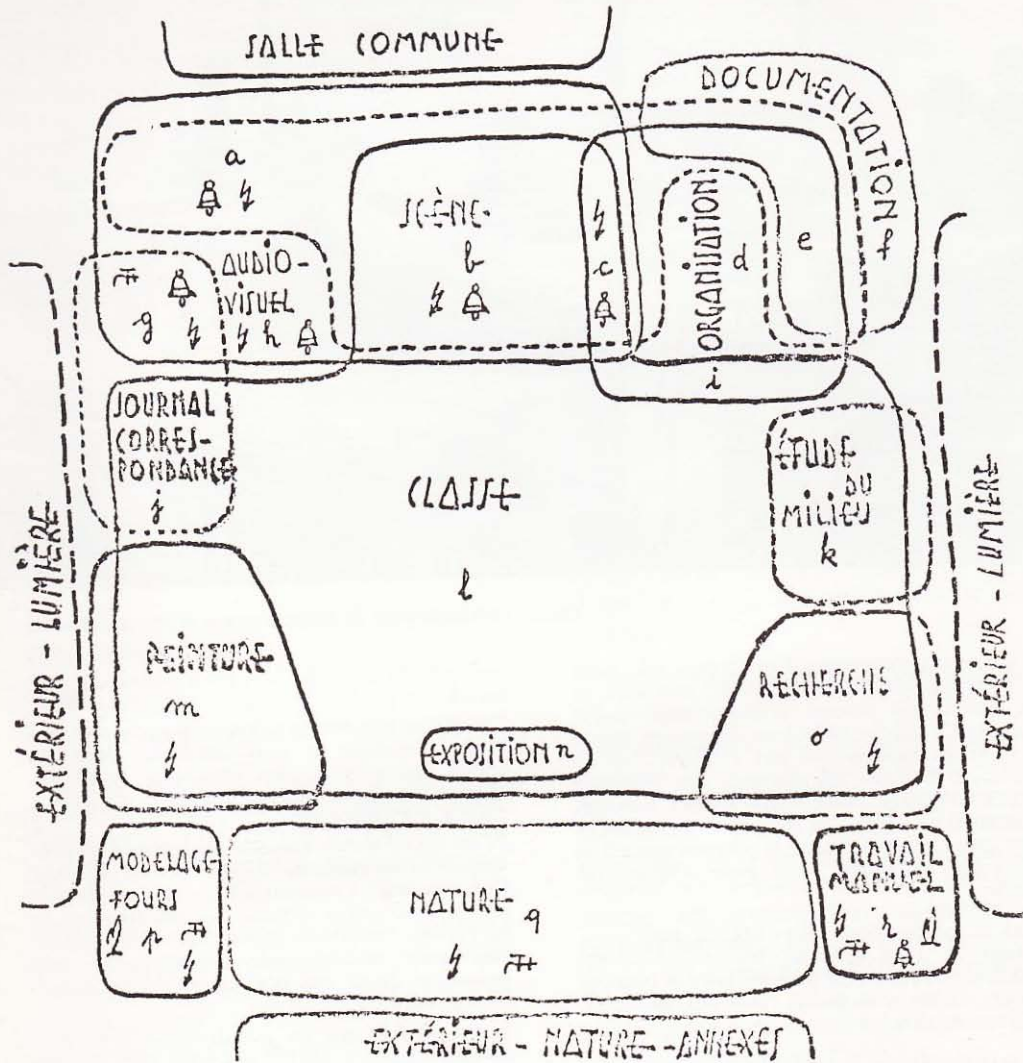 SALLE COMMUNE
DOCUMENTATION f
a
SCÈNE
b
c
ORGANISATION
d
e
i
AUDIO-
VISUEL
h
g
JOURNAL
CORRES-
PONDANCE
j
CLASSE
l
ÉTUDE
DU
MILIEU
k
EXTÉRIEUR - LUMIÈRE
EXTÉRIEUR - LUMIÈRE
PEINTURE
m
EXPOSITION n
RECHERCHE
o
MODELAGE
FOURS
p
NATURE q
TRAVAIL
MANUEL
r
EXTÉRIEUR - NATURE - ANNEXES